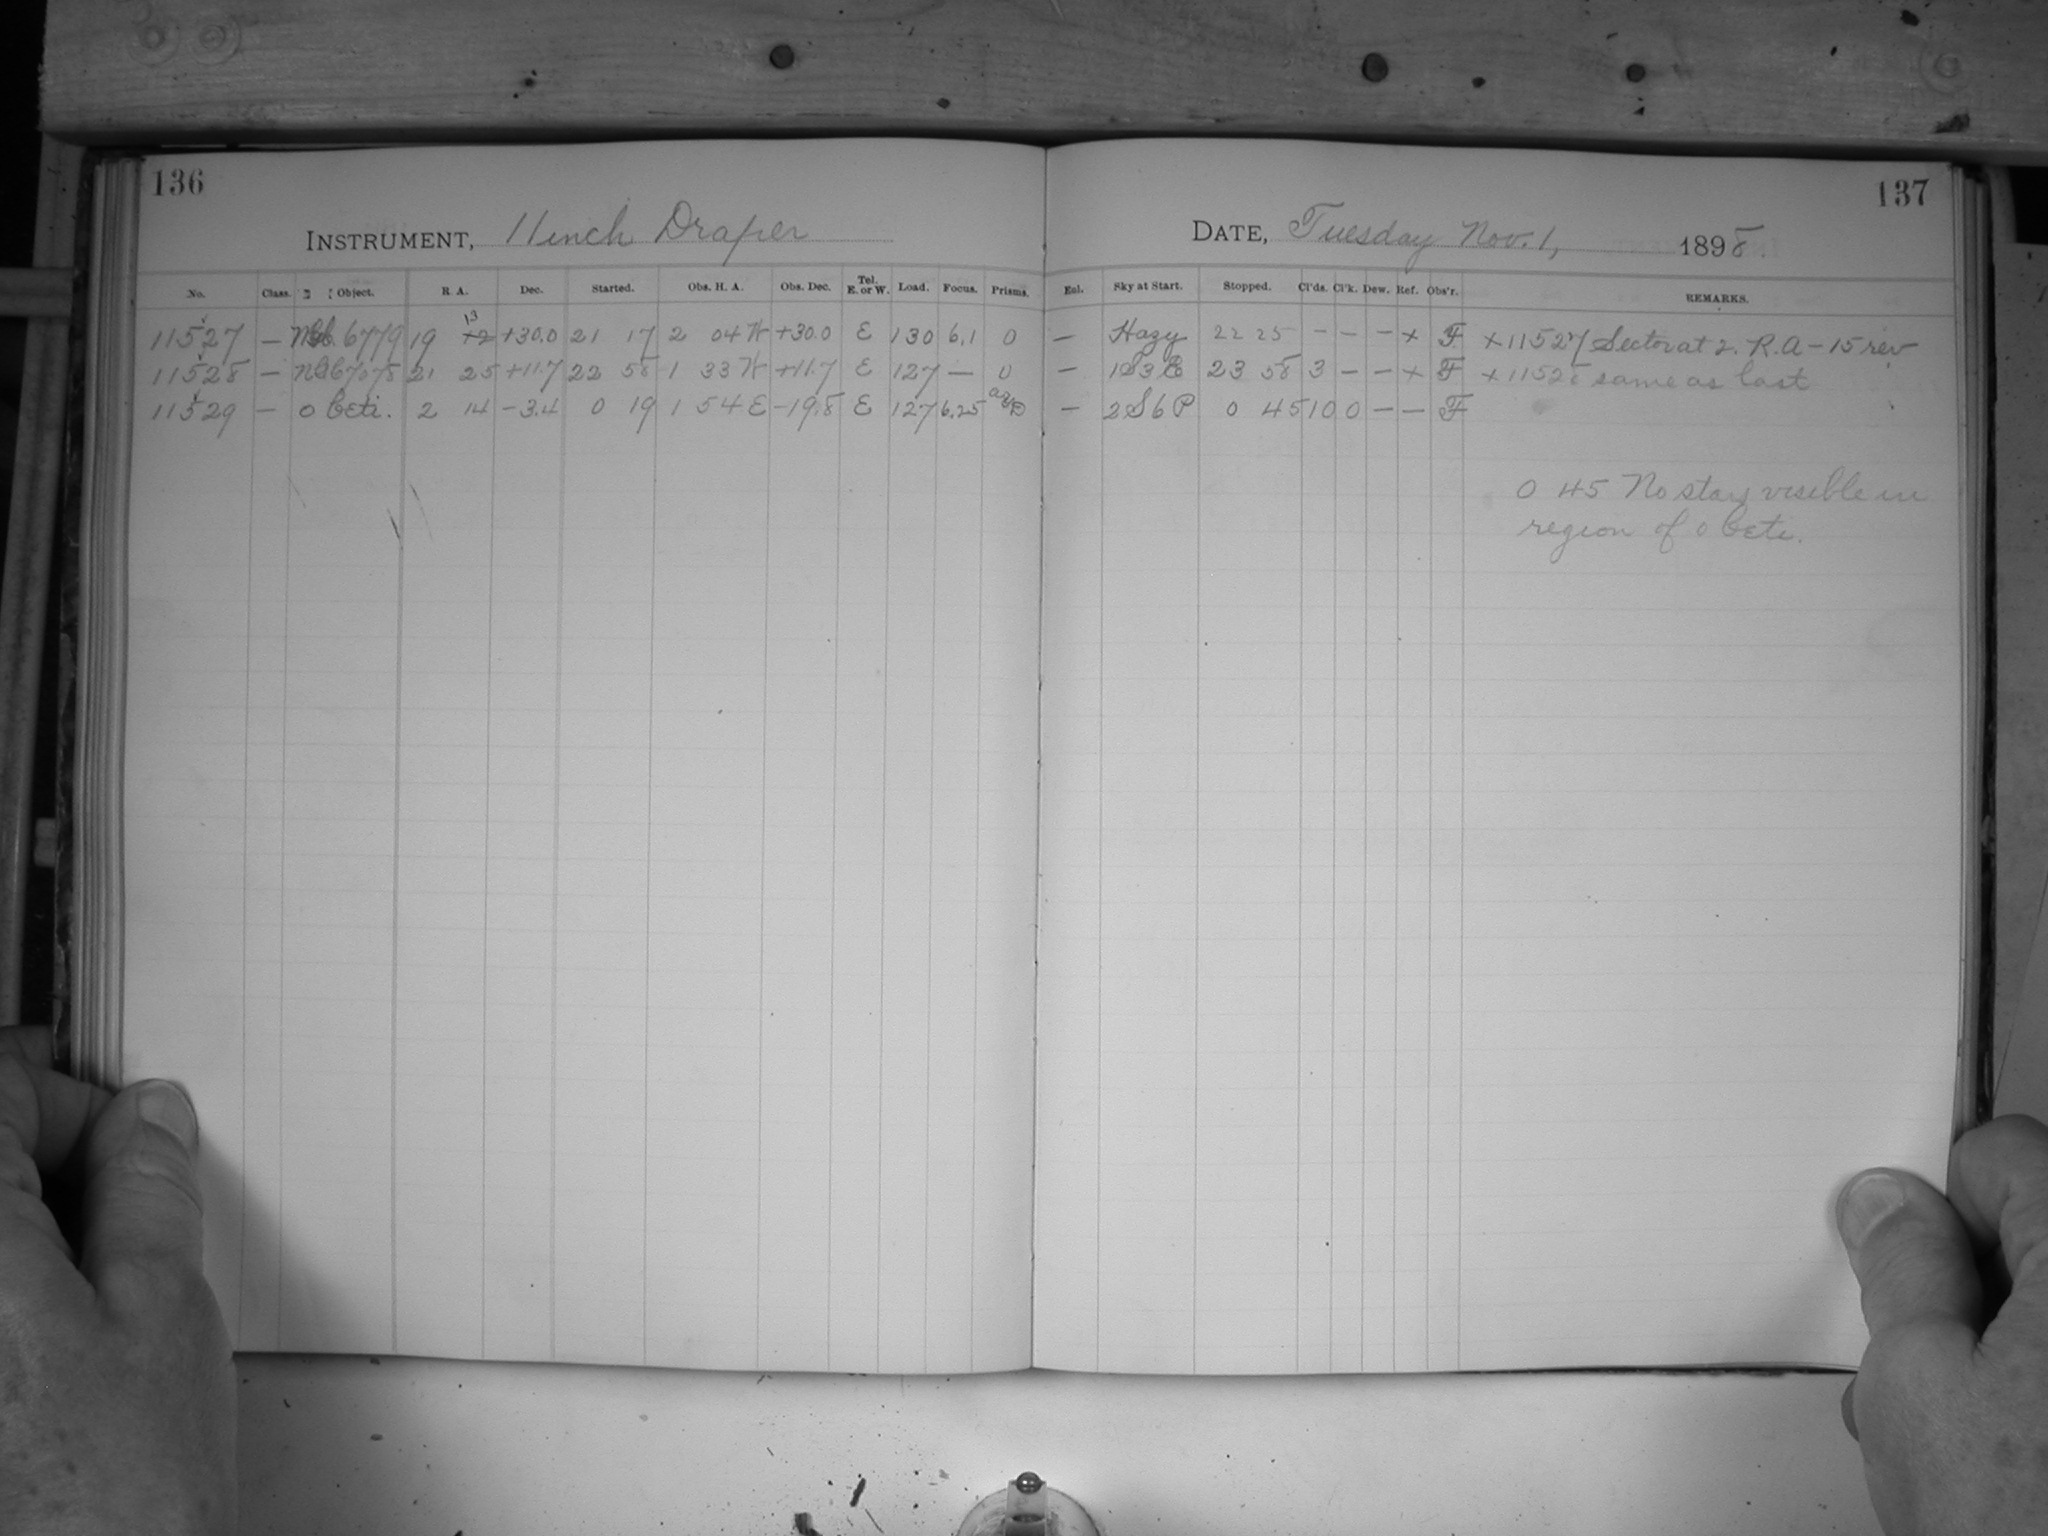 136
137
INSTRUMENT, 11 inch Draper
DATE, Tuesday Nov. 1, 1898.
No. Class. Object. R. A. Dec. Started. Obs. H. A. Obs. Dec. Tel. E. or W. Load. Focus. Prisms. Eol. Sky at Start. Stopped. Cl'ds. Cl'k. Dew. Ref. Obs'r. REMARKS.
13
11527 — 6779 19 12 +30.0 21 17 2 04 W +30.0 E 130 6.1 0 — Hazy 22 25 — — — x F x 11527 Sector at 2. R.A – 15 rev
11528 — 21 25 +11.7 22 58 1 33 W +11.7 E 127 — 0 — 1S3 23 58 3 — — x F x 11528 same as last
11529 — o Ceti. 2 14 –3.4 0 19 1 54 E –19.8 E 127 6.25 — 2S6P 0 45 10 0 — — F
0 45 No stars visible in
region of o Ceti.